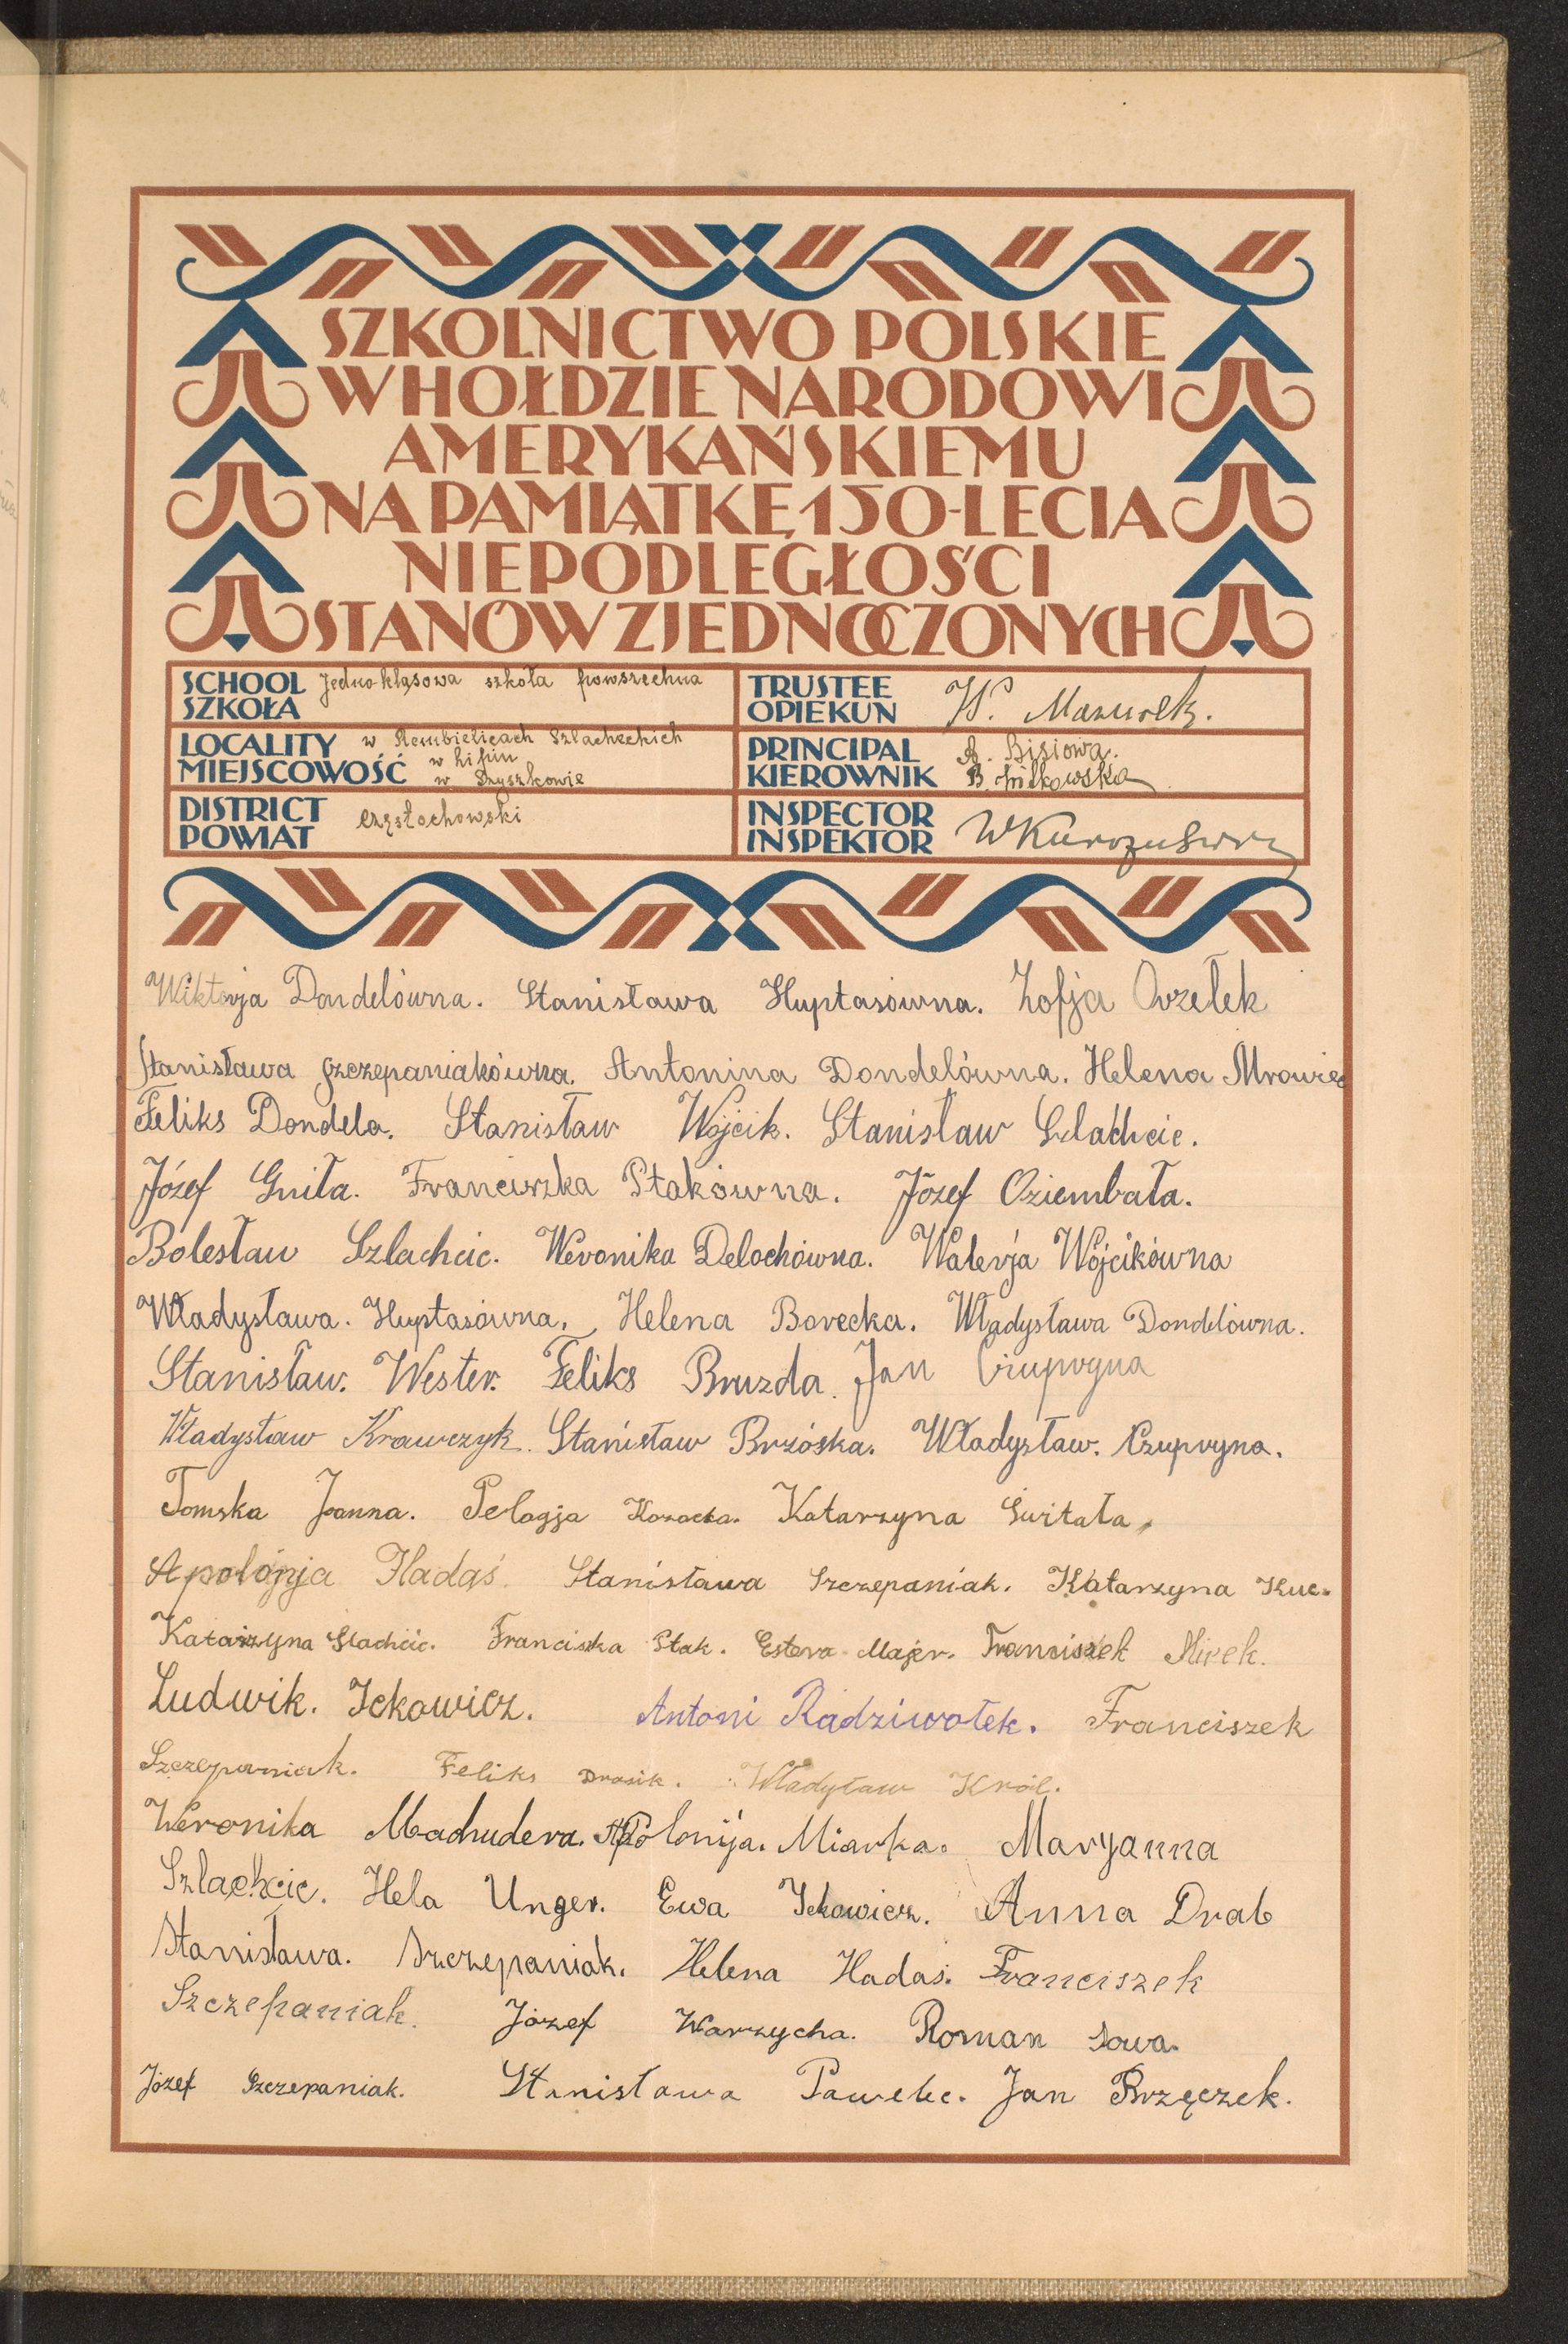 SZKOLNICTWO POLSKIE
W HOŁDZIE NARODOWI
AMERYKAŃSKIEMU
NA PAMIĄTKĘ 150-LECIA
NIEPODLEGŁOŚCI
STANÓW ZJEDNOCZONYCH
SCHOOL SZKOŁA Jedno-klasowa szkoła powszechna
TRUSTEE OPIEKUN W. Mazurek.
LOCALITY MIEJSCOWOŚĆ w Rembielicach Szlacheckich
w Lipiu
w Szyszkowie
PRINCIPAL KIEROWNIK A. Bisiowa.
B.
DISTRICT POWIAT częstochowski
INSPECTOR INSPEKTOR
Wiktorja Dondelówna. Stanisława Huptasówna. Zofja Orzełek
Stanisława Szczepaniakówna. Antonina Dondelówna. Helena Mrowiec
Feliks Dondela. Stanisław Wójcik. Stanisław Szlachcic.
Józef Gniła. Franciszka Ptakówna. Józef Oziembała.
Bolesław Szlachcic. Weronika Delochówna. Walerja Wójcikówna
Władysława. Huptasówna. Helena Borecka. Władysława Dondelówna.
Stanisław. Wester. Feliks Bruzda. Jan Czupryna
Władysław Krawczyk. Stanisław Brzóska. Władysław. Czupryna.
Tomska Joanna. Pelagja Kozacka. Katarzyna Świtała.
Apolonja Hadaś. Stanisława Szczepaniak. Katarzyna Kuc.
Katarzyna Slachcic. Franciszka Ptak. Estera Majer. Franciszek Mirek.
Ludwik. Ickowicz. Antoni Radziwołek. Franciszek
Szczepaniak. Feliks Drosik. Władyław Król.
Weronika Machudera. Apolonija. Miarka. Maryanna
Szlachcic. Hela Unger. Ewa Ickowicz. Anna Drab
Stanisława. Szczepaniak. Helena Hadaś. Franciszek
Szczepaniak. Józef Warzycha. Roman Sowa.
Józef Szczepaniak. Stanisława Pawelec. Jan Brzęczek.